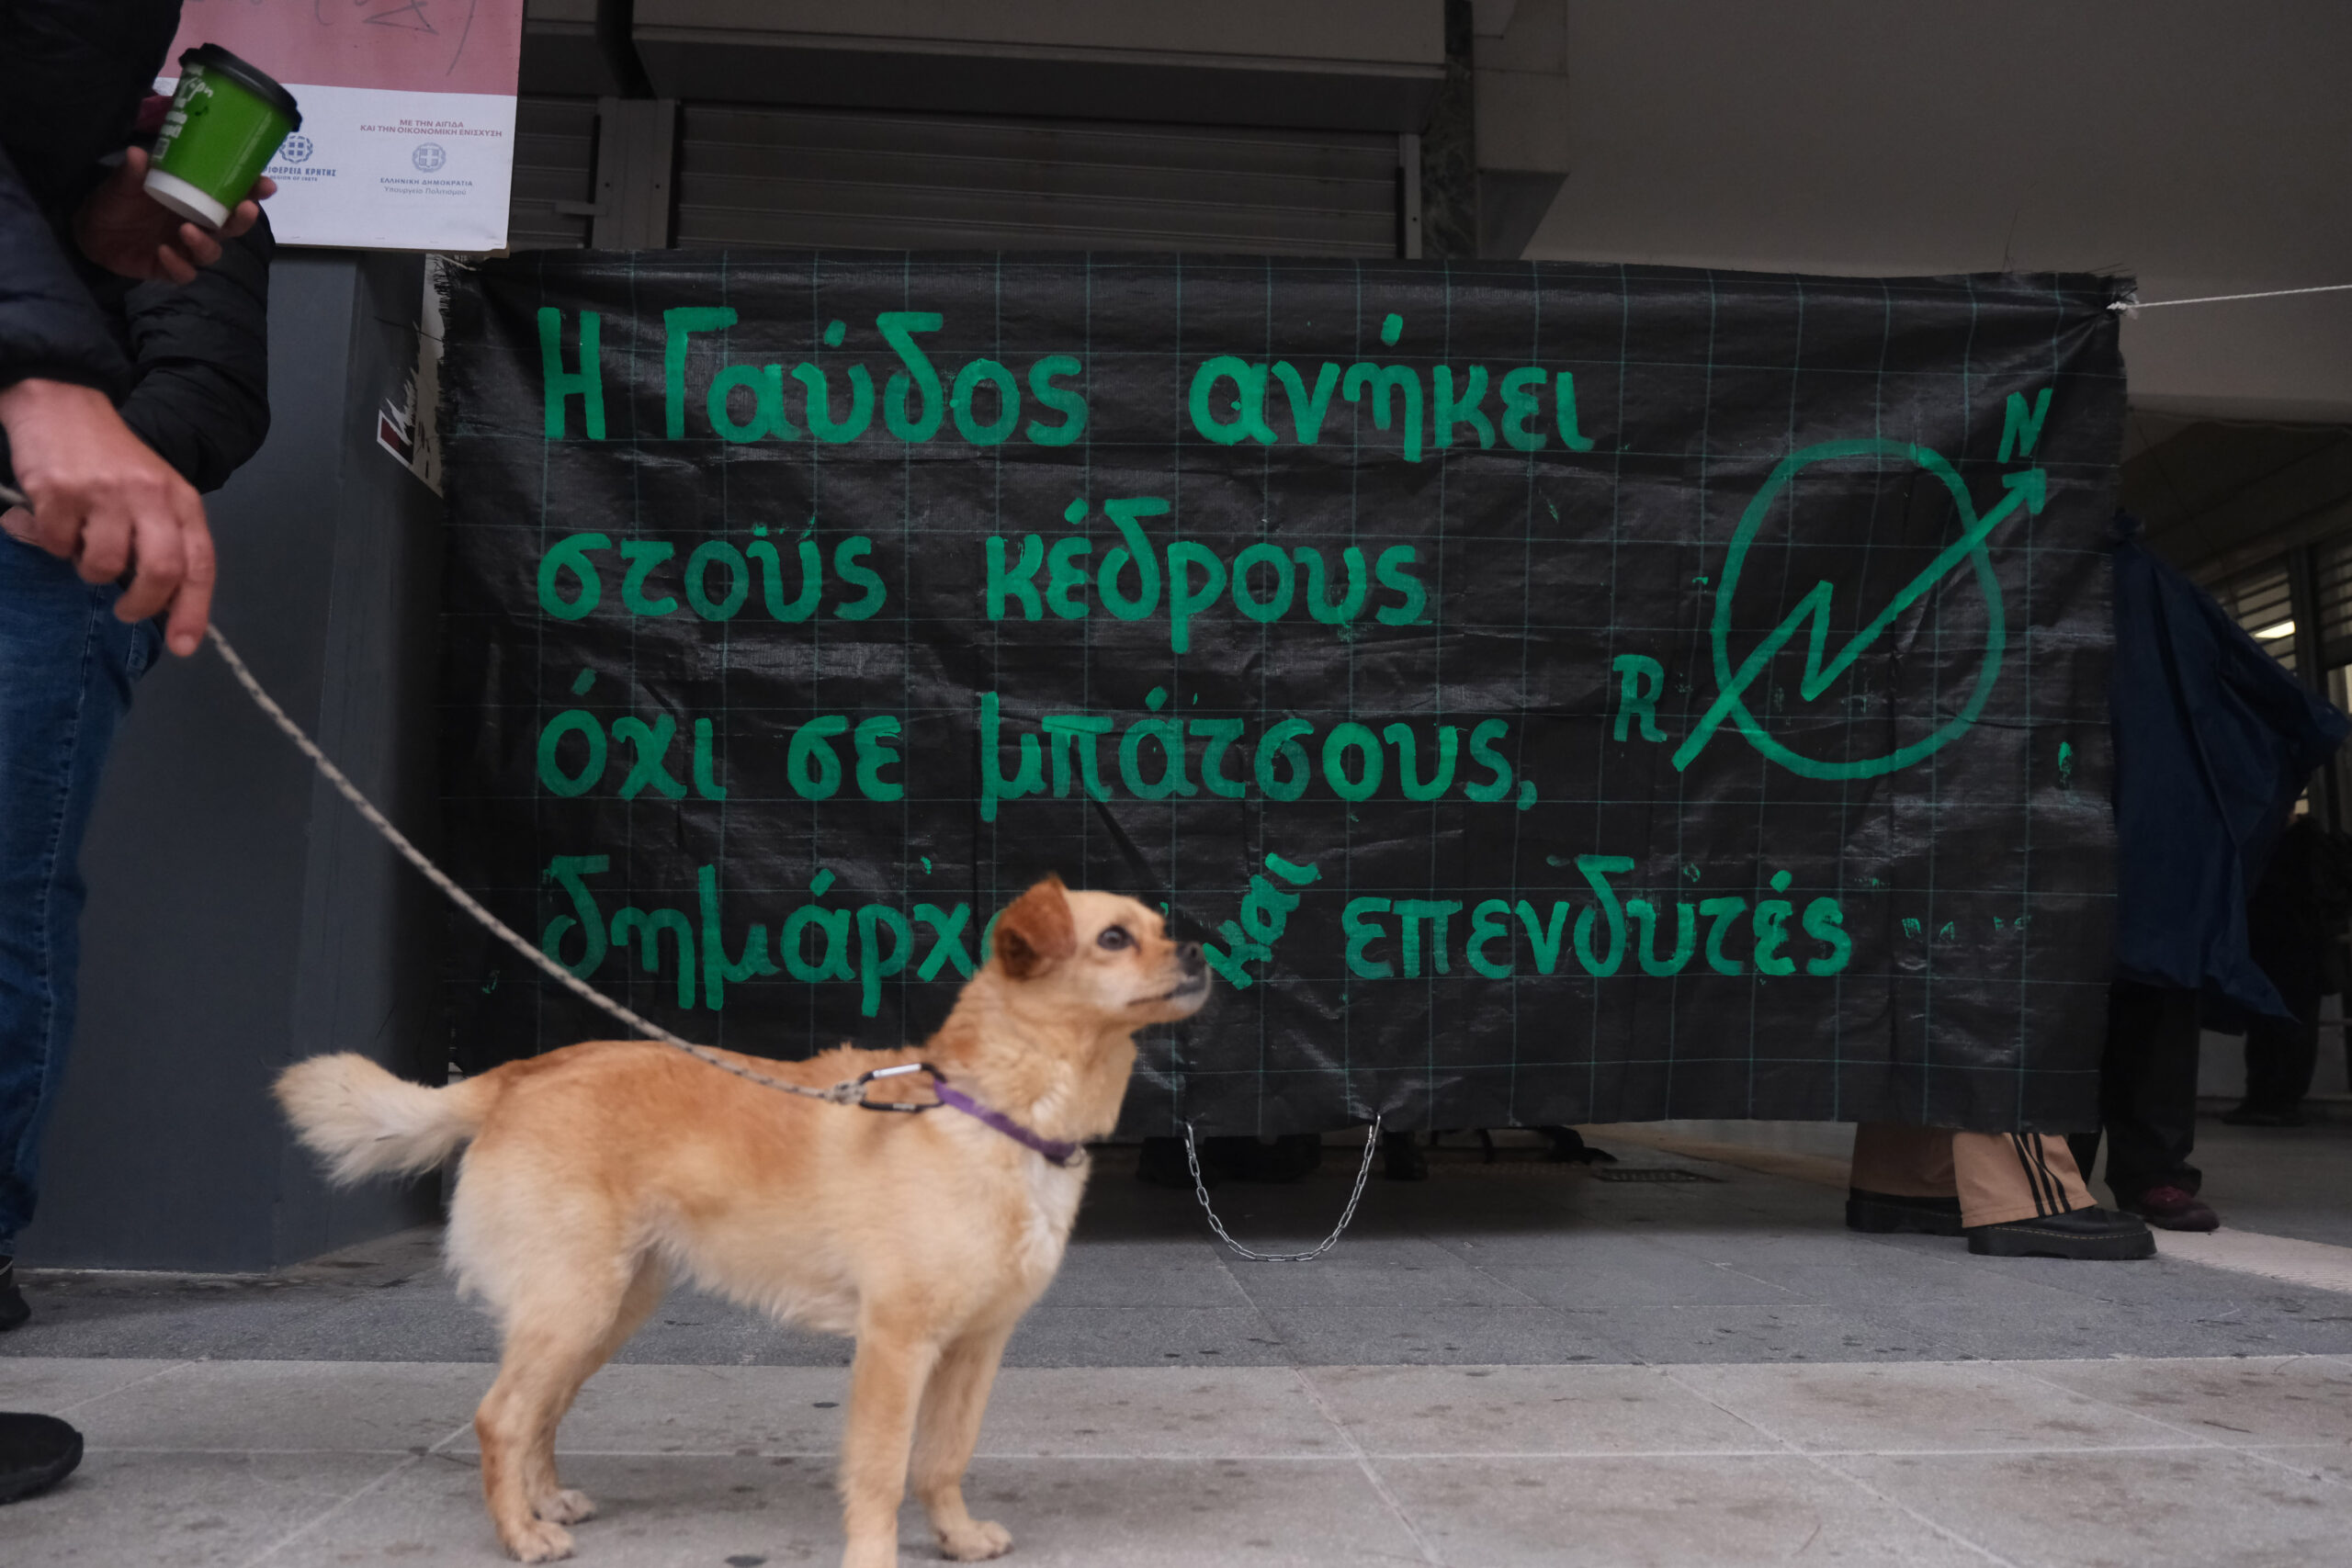 ΜΕ ΤΗΝ ΑΙΓΙΔΑ
ΚΑΙ ΤΗΝ ΟΙΚΟΝΟΜΙΚΗ ΕΝΙΣΧΥΣΗ
ΚΡΗΤΗΣ
ΕΛΛΗΝΙΚΗ ΔΗΜΟΚΡΑΤΙΑ
Υπουργείο Πολιτισμού
Η Γαύδος ανήκει
στους κέδρους
όχι σε μπάτσους,
και επενδυτές
N
R